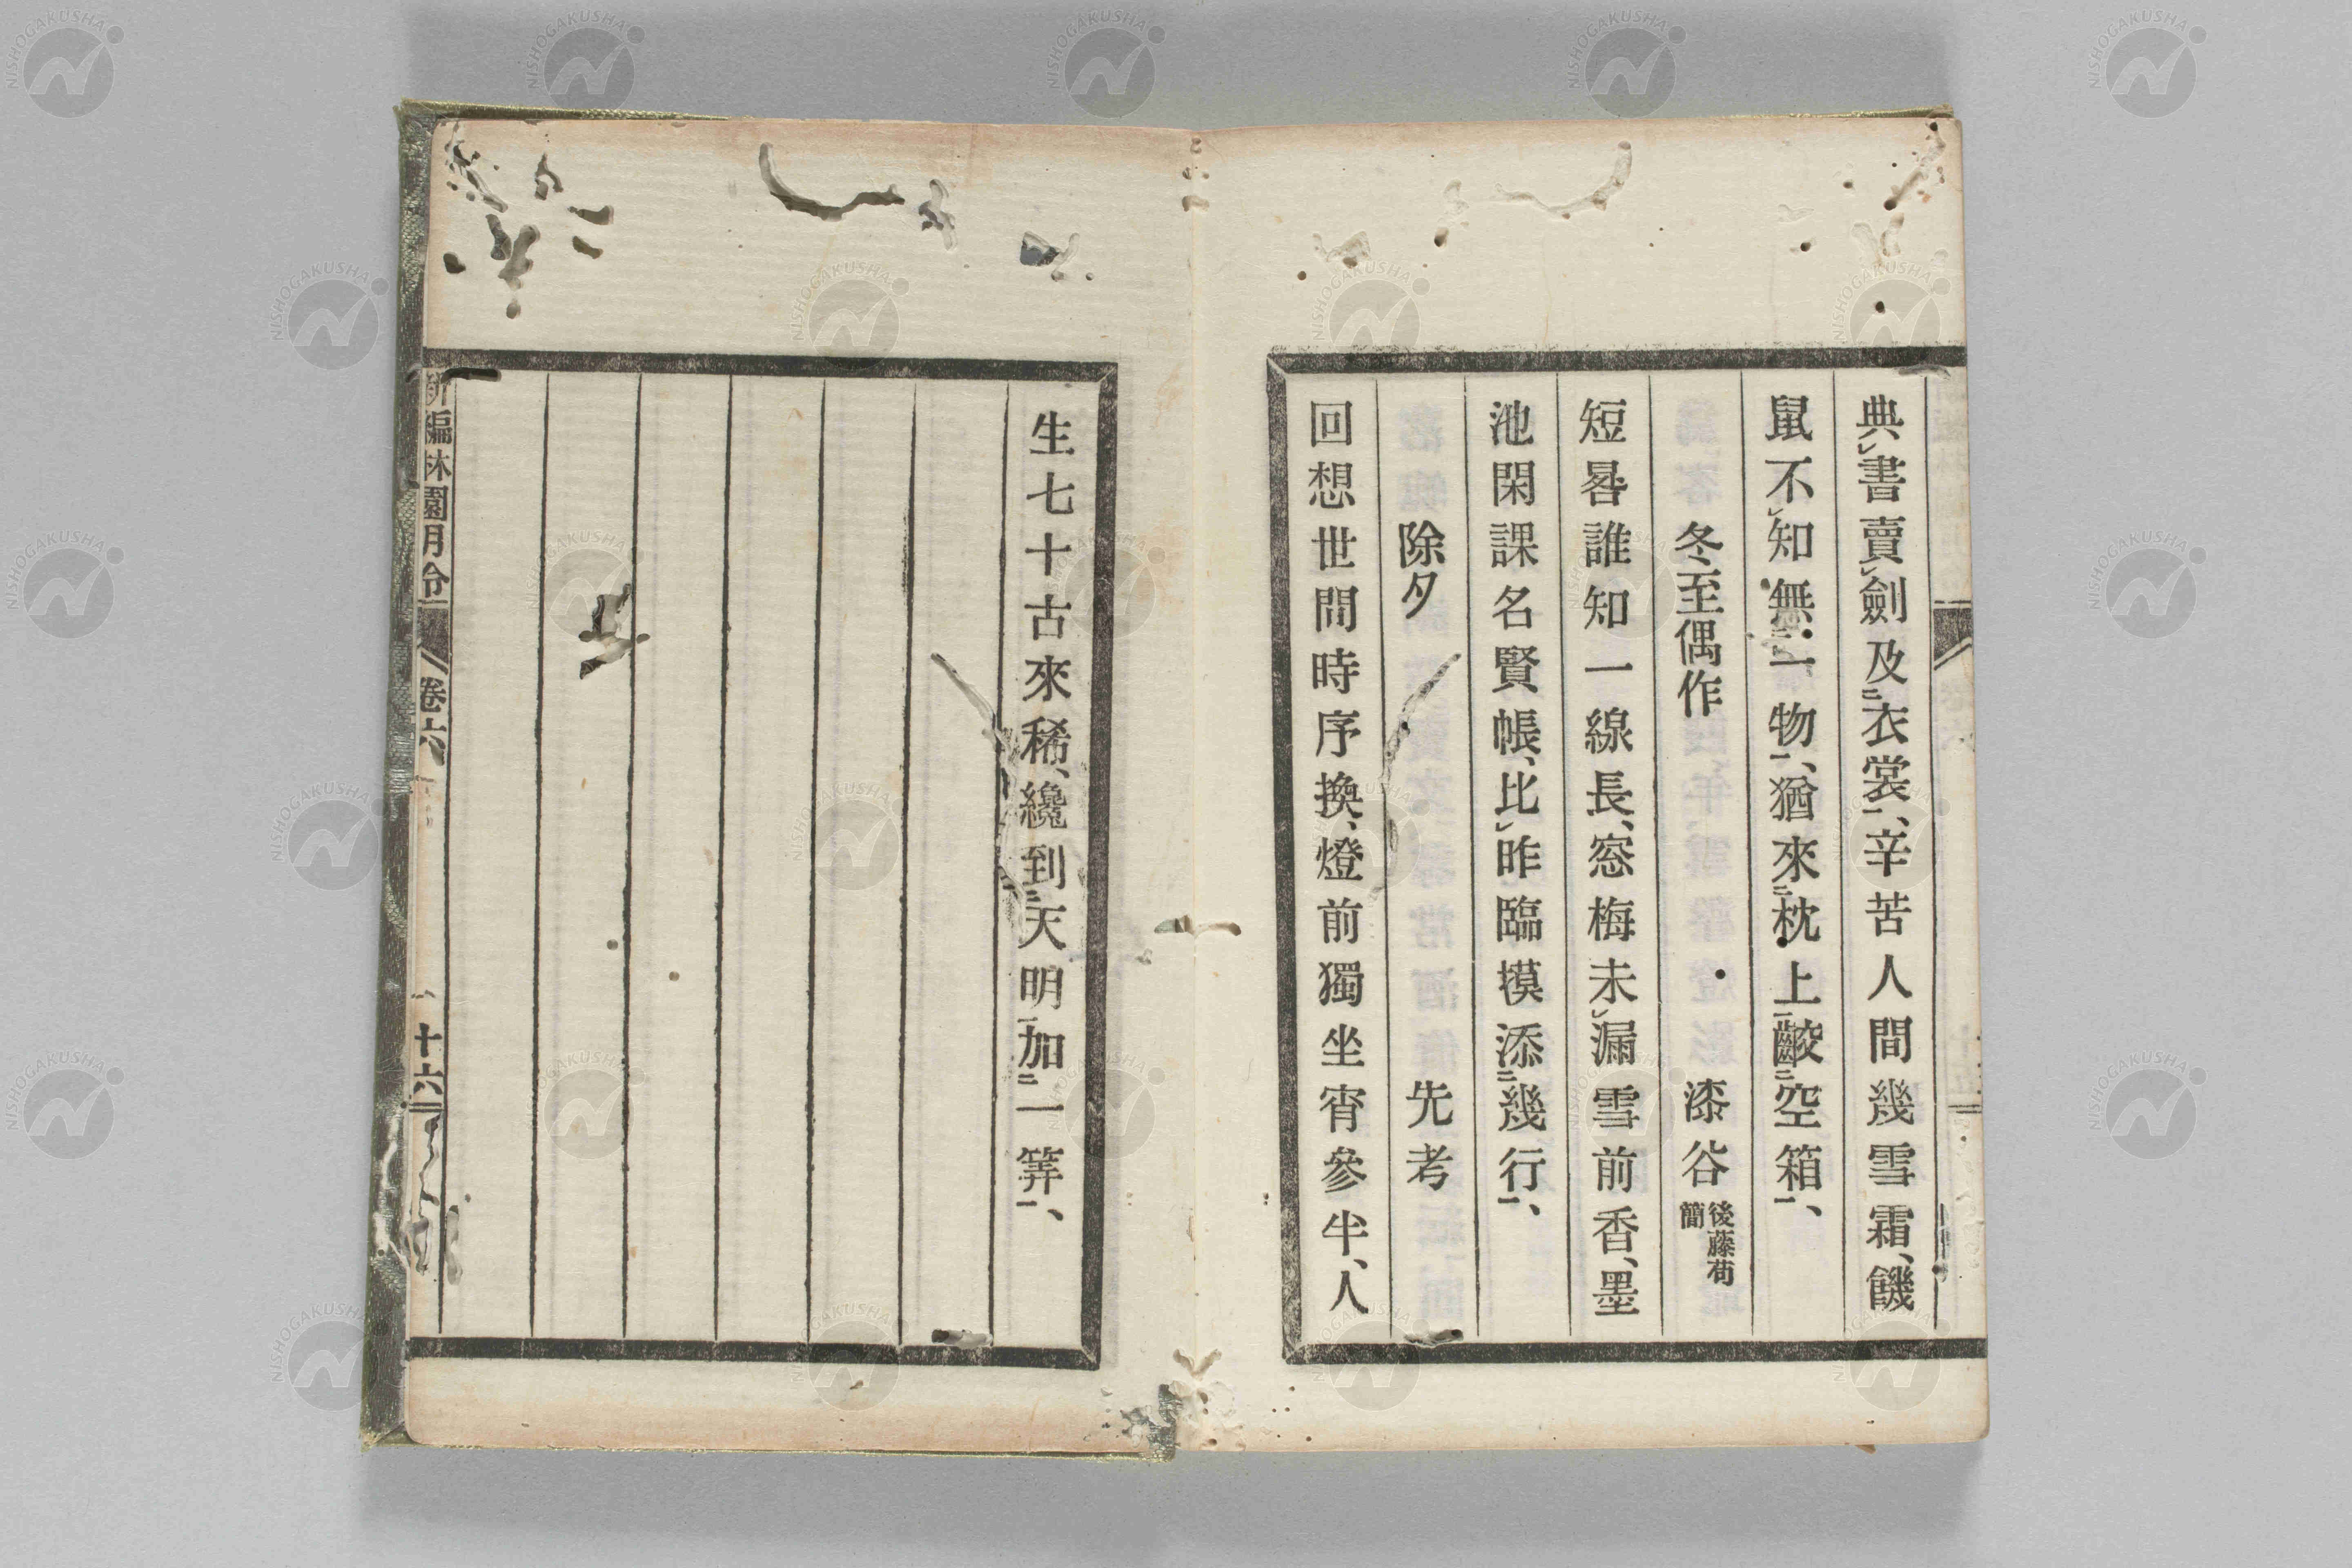 典㆑書賣㆑劍及㆓衣裳㆒、辛苦人間幾雪霜、饑
鼠不㆑知無㆓一物㆒、猶來㆓枕上㆒齩㆓空箱㆒、
冬至偶作　漆谷 後藤苟簡
短晷誰知一線長、窓梅未㆑漏雪前香、墨
池閑課名賢帳、比㆑昨臨摸添㆓幾行㆒、
除夕　先考
回想世間時序換、燈前獨坐宵參半、人
生七十古來稀、纔到㆓天明㆒加㆓一筭㆒、
新編林園月令
卷六
十六
NISHOGAKUSHA